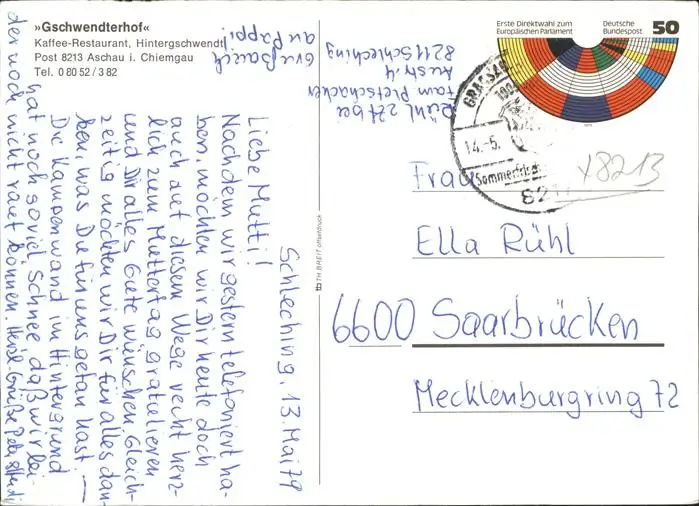 »Gschwendterhof«
Kaffee-Restaurant, Hintergschwendt
Post 8213 Aschau i. Chiemgau
Tel. 0 80 52 / 3 82
Gruß auch
an Pappi!
Schleching, 13. Mai 79
Liebe Mutti!
Nachdem wir gestern telefoniert ha-
ben, möchten wir Dir heute doch
auch auf diesem Wege recht herz-
lich zum Muttertag gratulieren
und Dir alles Gute wünschen. Gleich-
zeitig möchten wir Dir für alles dan-
ken, was Du für uns getan hast. —
Die Kampenwand im Hintergrund
hat noch soviel Schnee daß wir lei-
der noch nicht rauf können. Herzl. Grüße
TH. BREIT offsetdruck
Rühl zZt bei
Fam Pletschacher
Austr. 4
8211 Schleching
Erste Direktwahl zum
Europäischen Parlament
Deutsche
Bundespost
50
1979
GRASSAU
14.-5.
Sommerfrische
8217
x8213
Frau
Ella Rühl
6600 Saarbrücken
Mecklenburgring 72